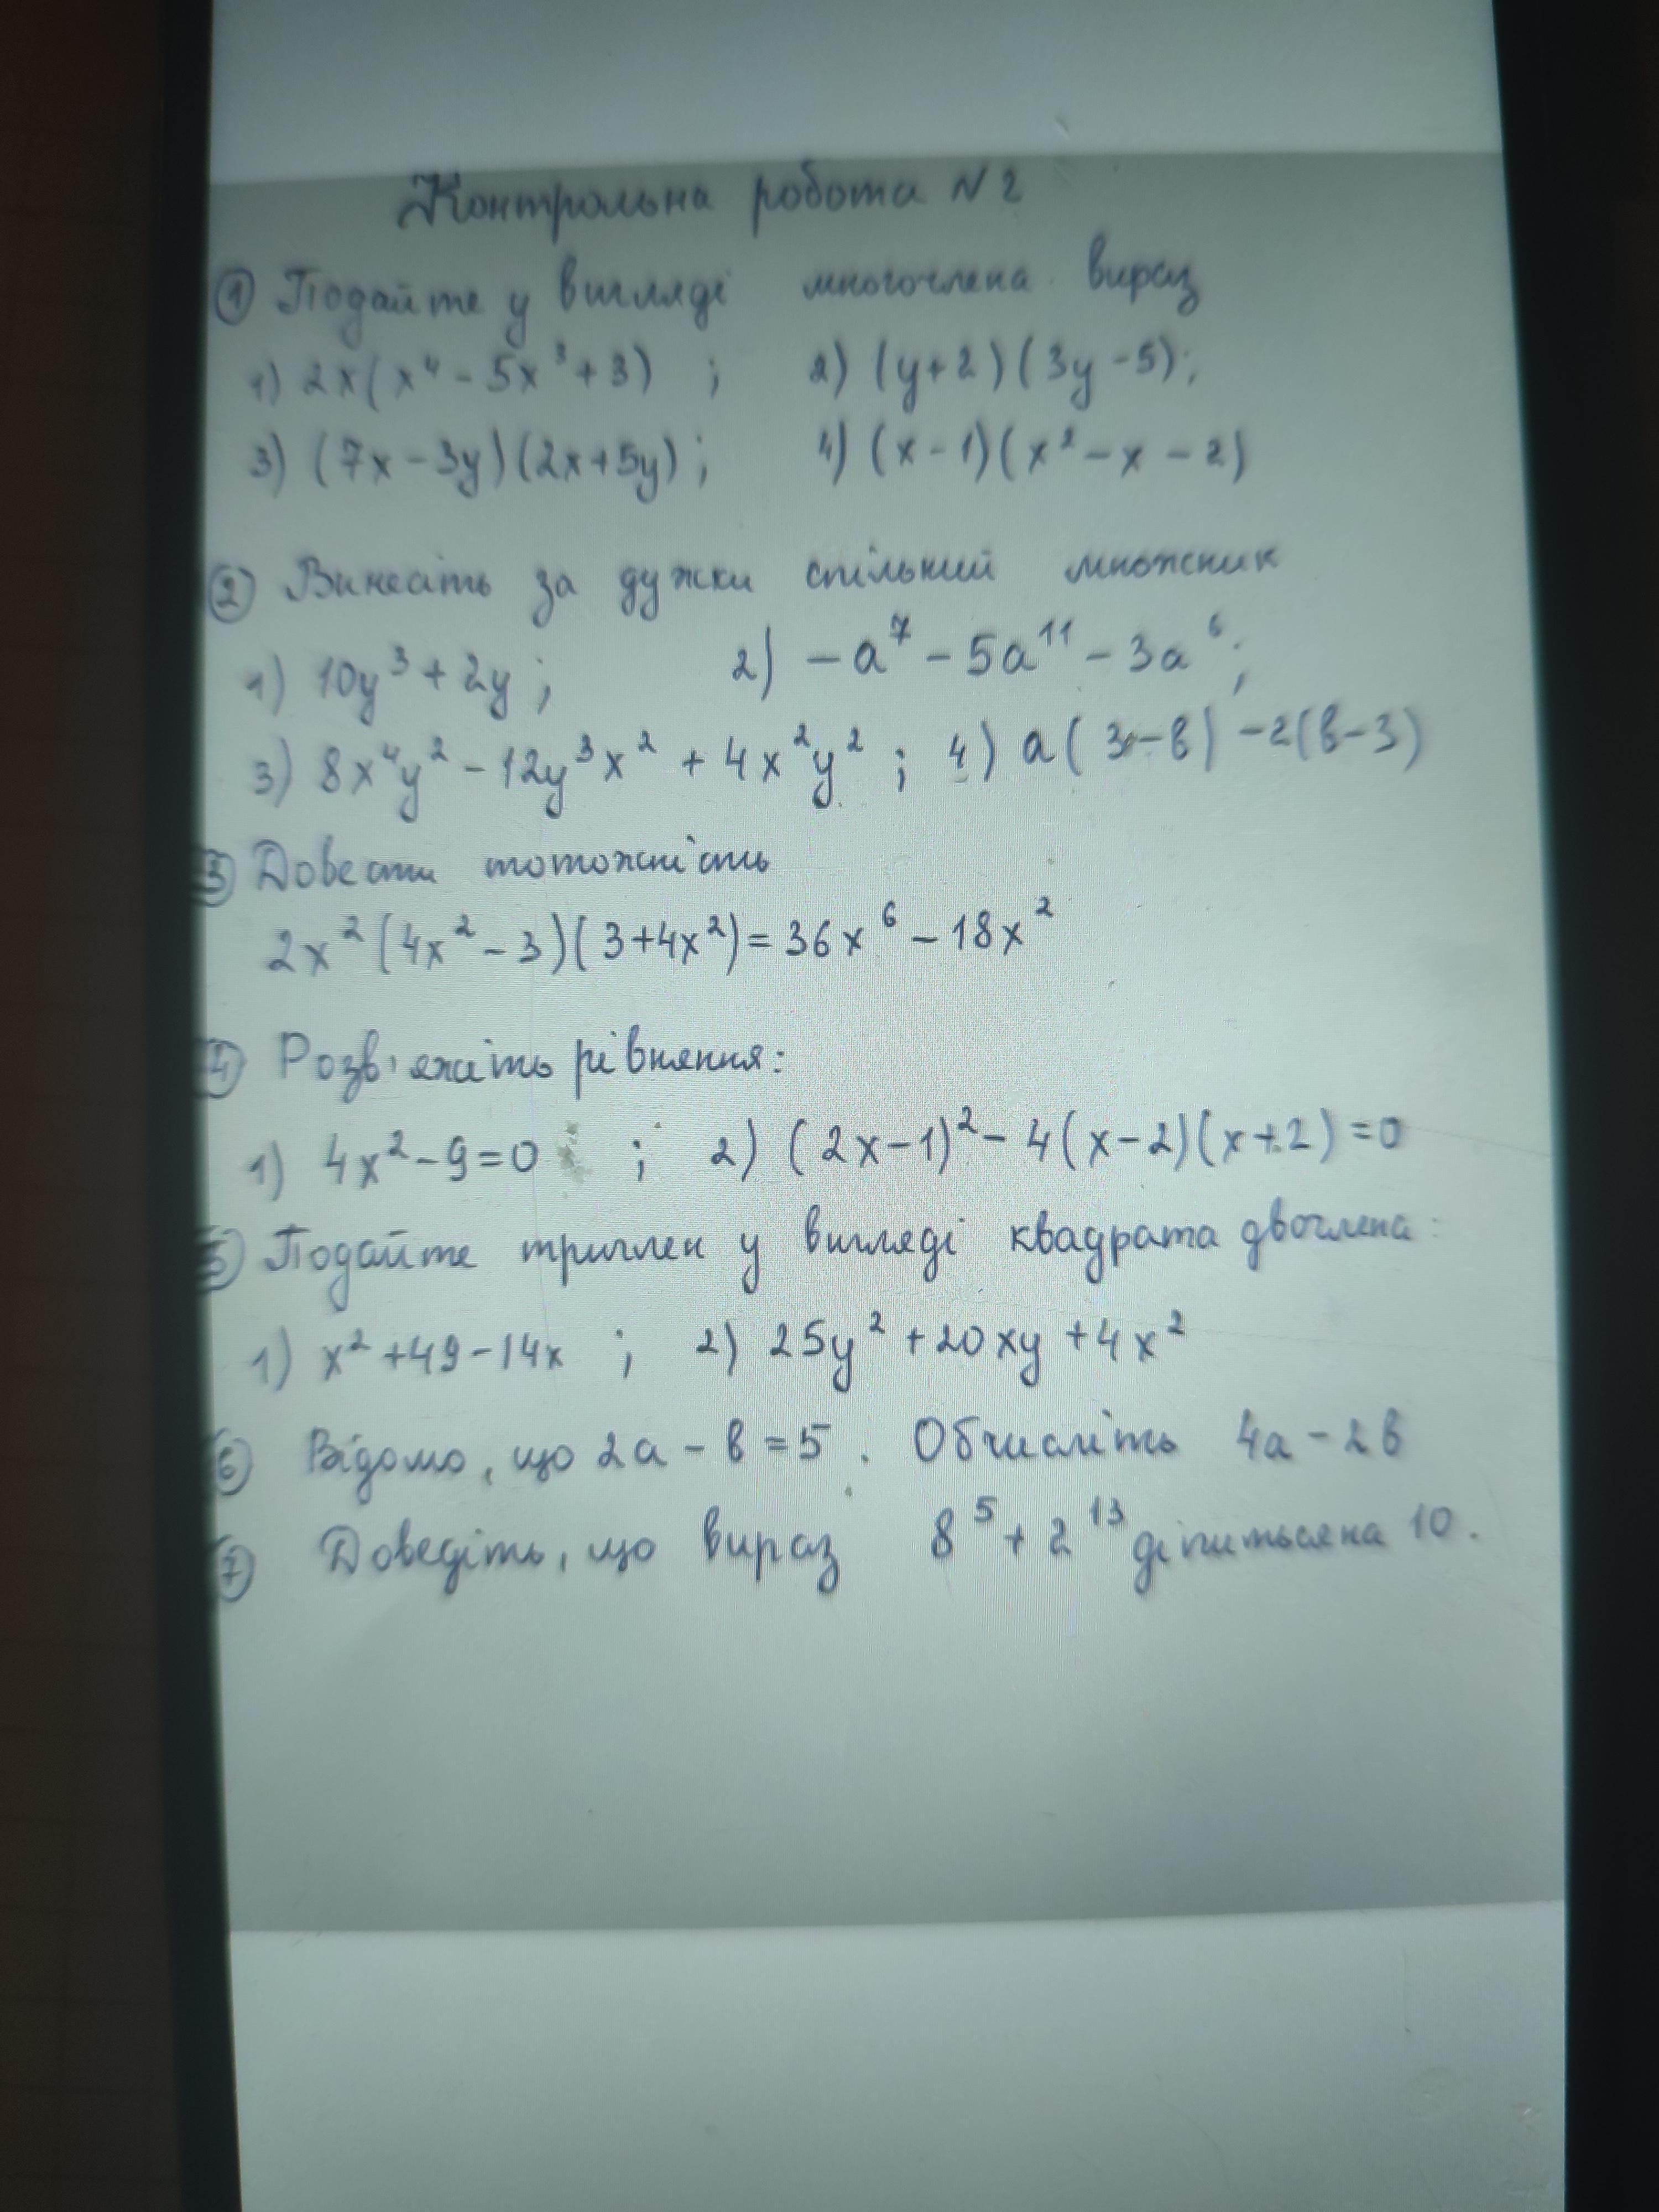 Контрольна робота N 2
① Подайте у вигляді многочлена вираз
1) 2x(x⁴ - 5x³ + 3) ; 2) (y+2)(3y-5);
3) (7x-3y)(2x+5y); 4) (x-1)(x²-x-2)
② Винесіть за дужки спільний множник
1) 10y³+2y; 2) -a⁷-5a¹¹-3a⁶;
3) 8x⁴y²-12y³x² + 4x²y² ; 4) a(3-в) -2(в-3)
③ Довести тотожність
2x²(4x²-3)(3+4x²)=36x⁶-18x²
④ Розв'яжіть рівняння:
1) 4x²-9=0 ; 2) (2x-1)²-4(x-2)(x+2)=0
⑤ Подайте тричлен у вигляді квадрата двочлена:
1) x²+49-14x ; 2) 25y²+20xy+4x²
⑥ Відомо, що 2a-в=5. Обчисліть 4a-2в
⑦ Доведіть, що вираз 8⁵+2¹³ ділиться на 10.